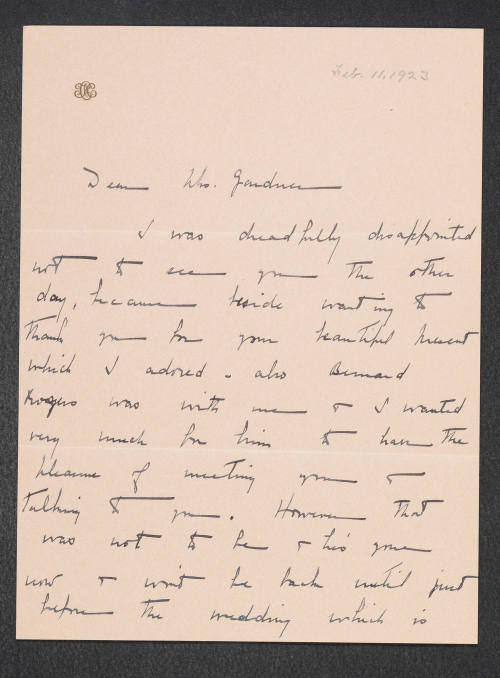 Feb. 11, 1923
Dear Mrs. Gardner
I was dreadfully disappointed
not to see you the other
day, because beside wanting to
thank you for your beautiful present
which I adored - also Bernard
Rogers was with me & I wanted
very much for him to have the
pleasure of meeting you &
talking to you. However that
was not to be & he's gone
now & won't be back until just
before the wedding which is